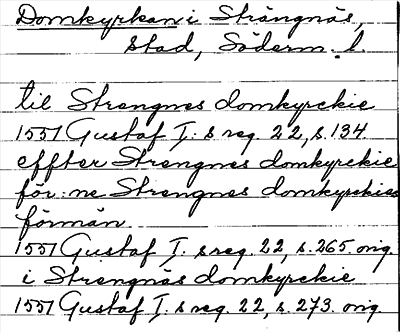 Domkyrkan i Strängnäs,
stad, Söderm. l.
til Strengnes domkyrckie
1551 Gustaf I:s reg. 22, s. 134
effter Strengnes domkyrckie
för:ne Strengnes domkyrckies
förmän
1551 Gustaf I. s reg. 22, s. 265. orig.
i Strengnäs domkyrckie
1551 Gustaf I. s reg. 22, s. 273. orig.